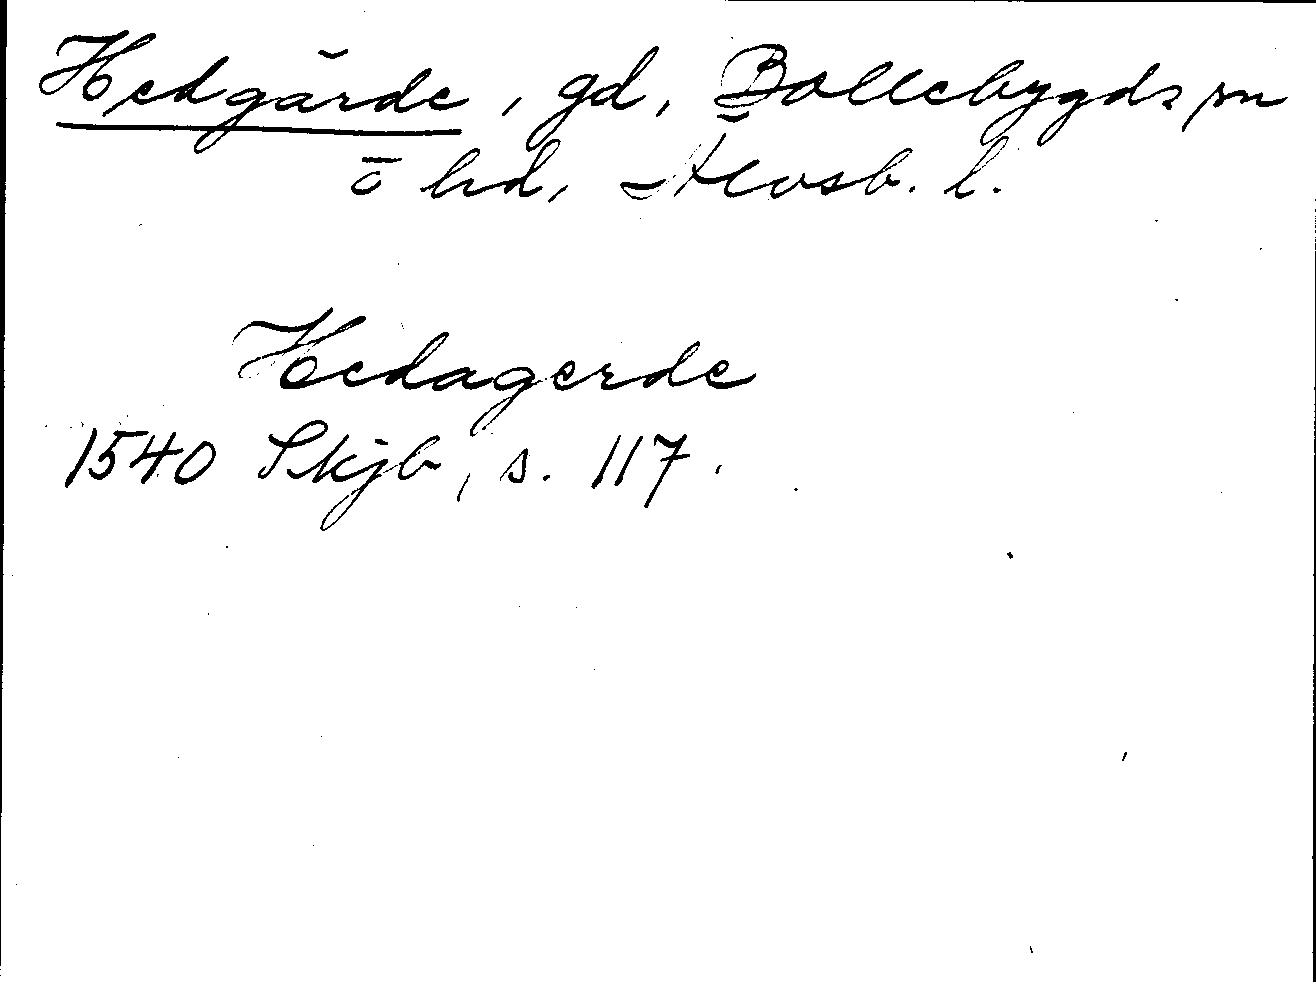 Hedgärde, gd, Bollebygds sn
o hd, Älvsb. l.
Hedagerde
1540 Skjb, s. 117.